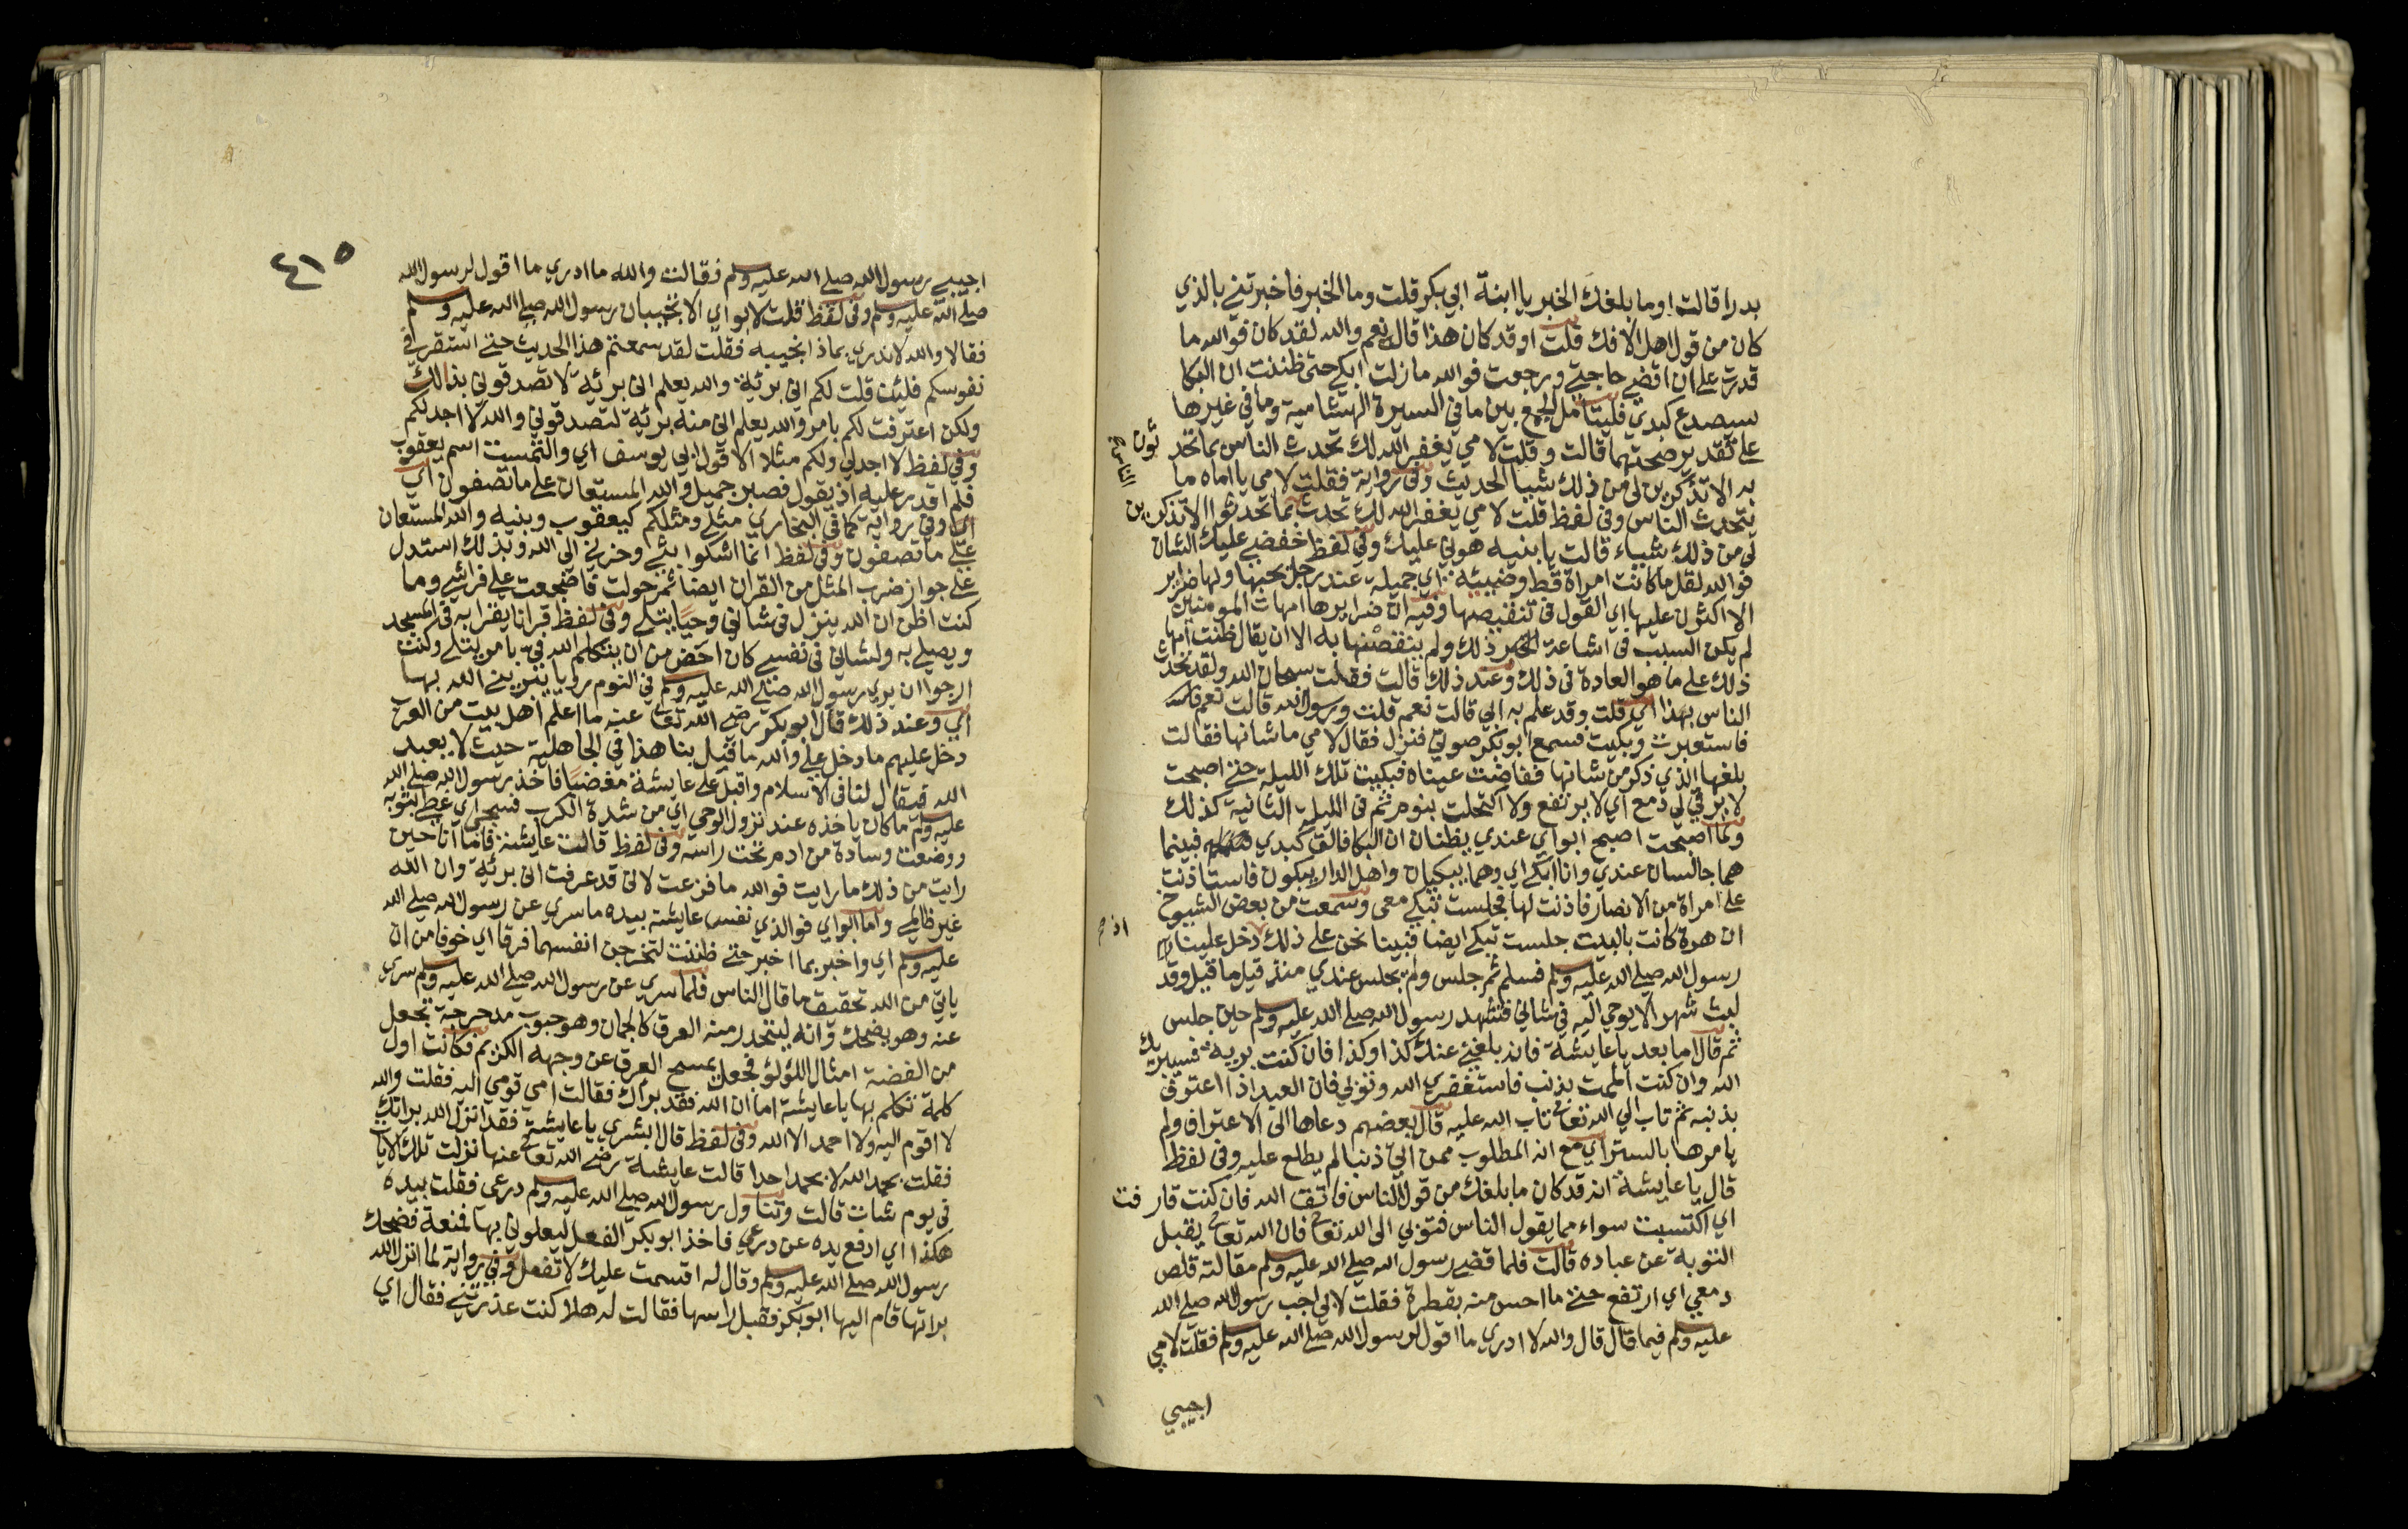 بدرا قالت اوما بلغك الخبر يا ابنة ابي بكر قلت وما الخبر فاخبرتني بالذي
كان من قول اهل الافك قلت اوقد كان هذا قال نعم والله لقد كان فوالله ما
قدرت على ان اقضي حاجتي ورجعت فوالله ما زلت ابكي حتى ظننت ان البكا
سيصدع كبدي فليتامل الجمع بين ما في السيرة الهشامية وما في غيرها
على تقدير صحتهما قالت وقلت لامي يغفر الله لك تحدث الناس بما تحد
ثون
الناس
به الا تذكرين لي من ذلك شيا الحديث وفي رواية فقلت لامي يا اماه ما
يتحدث الناس وفي لفظ قلت لامي يغفر الله لك تحدث بما تحدثوا الا تذكرين
لي من ذلك شياء قالت يا بنيه هوني عليك وفي لفظ خفضي عليك الشان
فوالله لقل ما كانت امراة قط وضيئة اي جميلة عند رجل يحبها ولها ضراير
الا اكثرن عليها اي القول في تنقيصها وفيه ان ضرايرها امهات المومنين
لم يكن السبب في اشاعة ذلك ولم ينتقصنها به الا ان يقال ظنت انها
ذلك على ما هو العادة في ذلك وعند ذلك قالت فقلت سبحان الله ولقد تحدث
الناس بهذا اي قلت وقد علم به ابي قالت نعم قلت ورسول الله قالت نعم
فاستعبرت وبكيت فسمع ابو بكر صوتي فنزل فقال لامي ما شانها فقالت
بلغها الذي ذكر من شانها ففاضت عيناه فبكيت تلك الليلة حتى اصبحت
لا يرقى لي دمع اي لا يرتفع ولا اكتحلت بنوم ثم في الليلة الثانية كذلك
ولما اصبحت اصبح ابواي عندي يظنان ان البكا فالق كبدي فبينما
هما جالسان عندي وانا ابكي اي وهما يبكيان واهل الدار يبكون فاستاذنت
على امراة من الانصار فاذنت لها فجلست تبكي معي وسمعت من بعض الشيوخ
ان هرة كانت بالبيت جلست تبكي ايضا فبينا نحن على ذلك دخل علينا
اذ
رسول الله صلى الله عليه وسلم فسلم ثم جلس ولم يجلس عندي منذ قيل ما قيل وقد
لبث شهرا لا يوحى اليه في شاني فتشهد رسول الله صلى الله عليه وسلم حين جلس
ثم قال اما بعد يا عايشة فانه بلغني عنك كذا وكذا فان كنت بريه فسيبريك
الله وان كنت الممت بذنب فاستغفري الله وتوبي فان العبد اذا اعترف
بذنبه ثم تاب الى الله تعالى تاب الله عليه قال بعضهم دعاها الى الاعتراف ولم
يامرها بالستر اي مع انه المطلوب ممن اتى ذنبا لم يطلع عليه وفي لفظ
قال يا عايشة انه قد كان ما بلغك من قول الناس فاتق الله فان كنت قارفت
اي اكتسبت سواء مما يقول الناس فتوبي الى الله تعالى فان الله تعالى يقبل
التوبة عن عباده قالت فلما قضى رسول الله صلى الله عليه وسلم مقالته قلص
دمعي اي ارتفع حتى ما احس منه بقطرة فقلت لابي اجب رسول الله صلى الله
عليه وسلم فيما قال قال والله لا ادري ما اقول لرسول الله صلى الله عليه وسلم فقلت لامي
اجيبي
٤١٥
اجيبي رسول الله صلى الله عليه وسلم فقالت والله ما ادري ما اقول لرسول الله
صلى الله عليه وسلم وفي لفظ قلت لابواي الا تجيبان رسول الله صلى الله عليه وسلم
فقالا والله لا ندري بماذا نجيبه فقلت لقد سمعتم هذا الحديث حتى استقر في
نفوسكم فلئن قلت لكم اني برئية والله يعلم اني برئية لا تصدقوني بذالك
ولكن اعترفت لكم بامر والله يعلم اني منه برئية لتصدقوني والله لا اجد لكم
وفي لفظ لا اجد لي ولكم مثلا الا قول ابي يوسف اي والتمست اسم يعقوب
فلم اقدر عليه اذ يقول فصبر جميل والله المستعان على ما تصفون اي
وفي رواية كما في البخاري مثلي ومثلكم كيعقوب وبنيه والله المستعان
على ما تصفون وفي لفظ انما اشكوا بثي وحزني الى الله وبذلك استدل
على جواز ضرب المثل من القران ايضا ثم حولت فاضجعت على فراشي وما
كنت اظن ان الله ينزل في شاني وحيا يتلى وفي لفظ قرانا يقرا به في المسجد
ويصلي به ولشاني في نفسي كان احقر من ان يتكلم الله في بامر يتلى وكنت
ارجوا ان يرى رسول الله صلى الله عليه وسلم في النوم رويا يبريني الله بها
اي وعند ذلك قال ابو بكر رضي الله تعالى عنه ما اعلم اهل بيت من العرب
دخل عليهم ما دخل علي والله ما قيل بنا هذا في الجاهلية حيث لا يعبد
الله فيقال لنا في الاسلام واقبل على عايشة مغضبا فاخذ رسول الله صلى الله
عليه وسلم ما كان ياخذه عند نزول الوحي اي من شدة الكرب فسجي اي غطي بثوبه
ووضعت وسادة من ادم تحت راسه وفي لفظ قالت عايشة فاما انا حين
رايت من ذلك ما رايت فوالله ما فزعت لاني قد عرفت اني برئية وان الله
غير ظالمي واما ابواي فوالذي نفس عايشة بيده ما سري عن رسول الله صلى الله
عليه وسلم اي واخبر بما اخبر حتى ظننت لتخرجن انفسهما فرقا اي خوفا من ان
ياتي من الله تحقيق ما قال الناس فلما سري عن رسول الله صلى الله عليه وسلم سري
عنه وهو يضحك وانه ليتحدر منه العرق كالجمان وهو حبوب مدحرجة تجعل
من الفضة امثال اللؤلؤ فجعل يمسح العرق عن وجهه الكريم فكانت اول
كلمة تكلم بها يا عايشة اما ان الله فقد براك فقالت امي قومي اليه فقلت والله
لا اقوم اليه ولا احمد الا الله وفي لفظ قال ابشري يا عايشة فقد انزل الله براتك
فقلت بحمد الله لا بحمد احدا قالت عايشة رضي الله تعالى عنها نزلت تلك الايات
في يوم شات قالت وتناول رسول الله صلى الله عليه وسلم درعي فقلت بيده
هكذا اي ادفع يده عن درعي فاخذ ابو بكر الفعل ليعلوني بها فمنعه فضحك
رسول الله صلى الله عليه وسلم وقال له اقسمت عليك لا تفعل وفي رواية لما انزل الله
براتها قام اليها ابو بكر فقبل راسها فقالت له هلا كنت عذرتني فقال اي